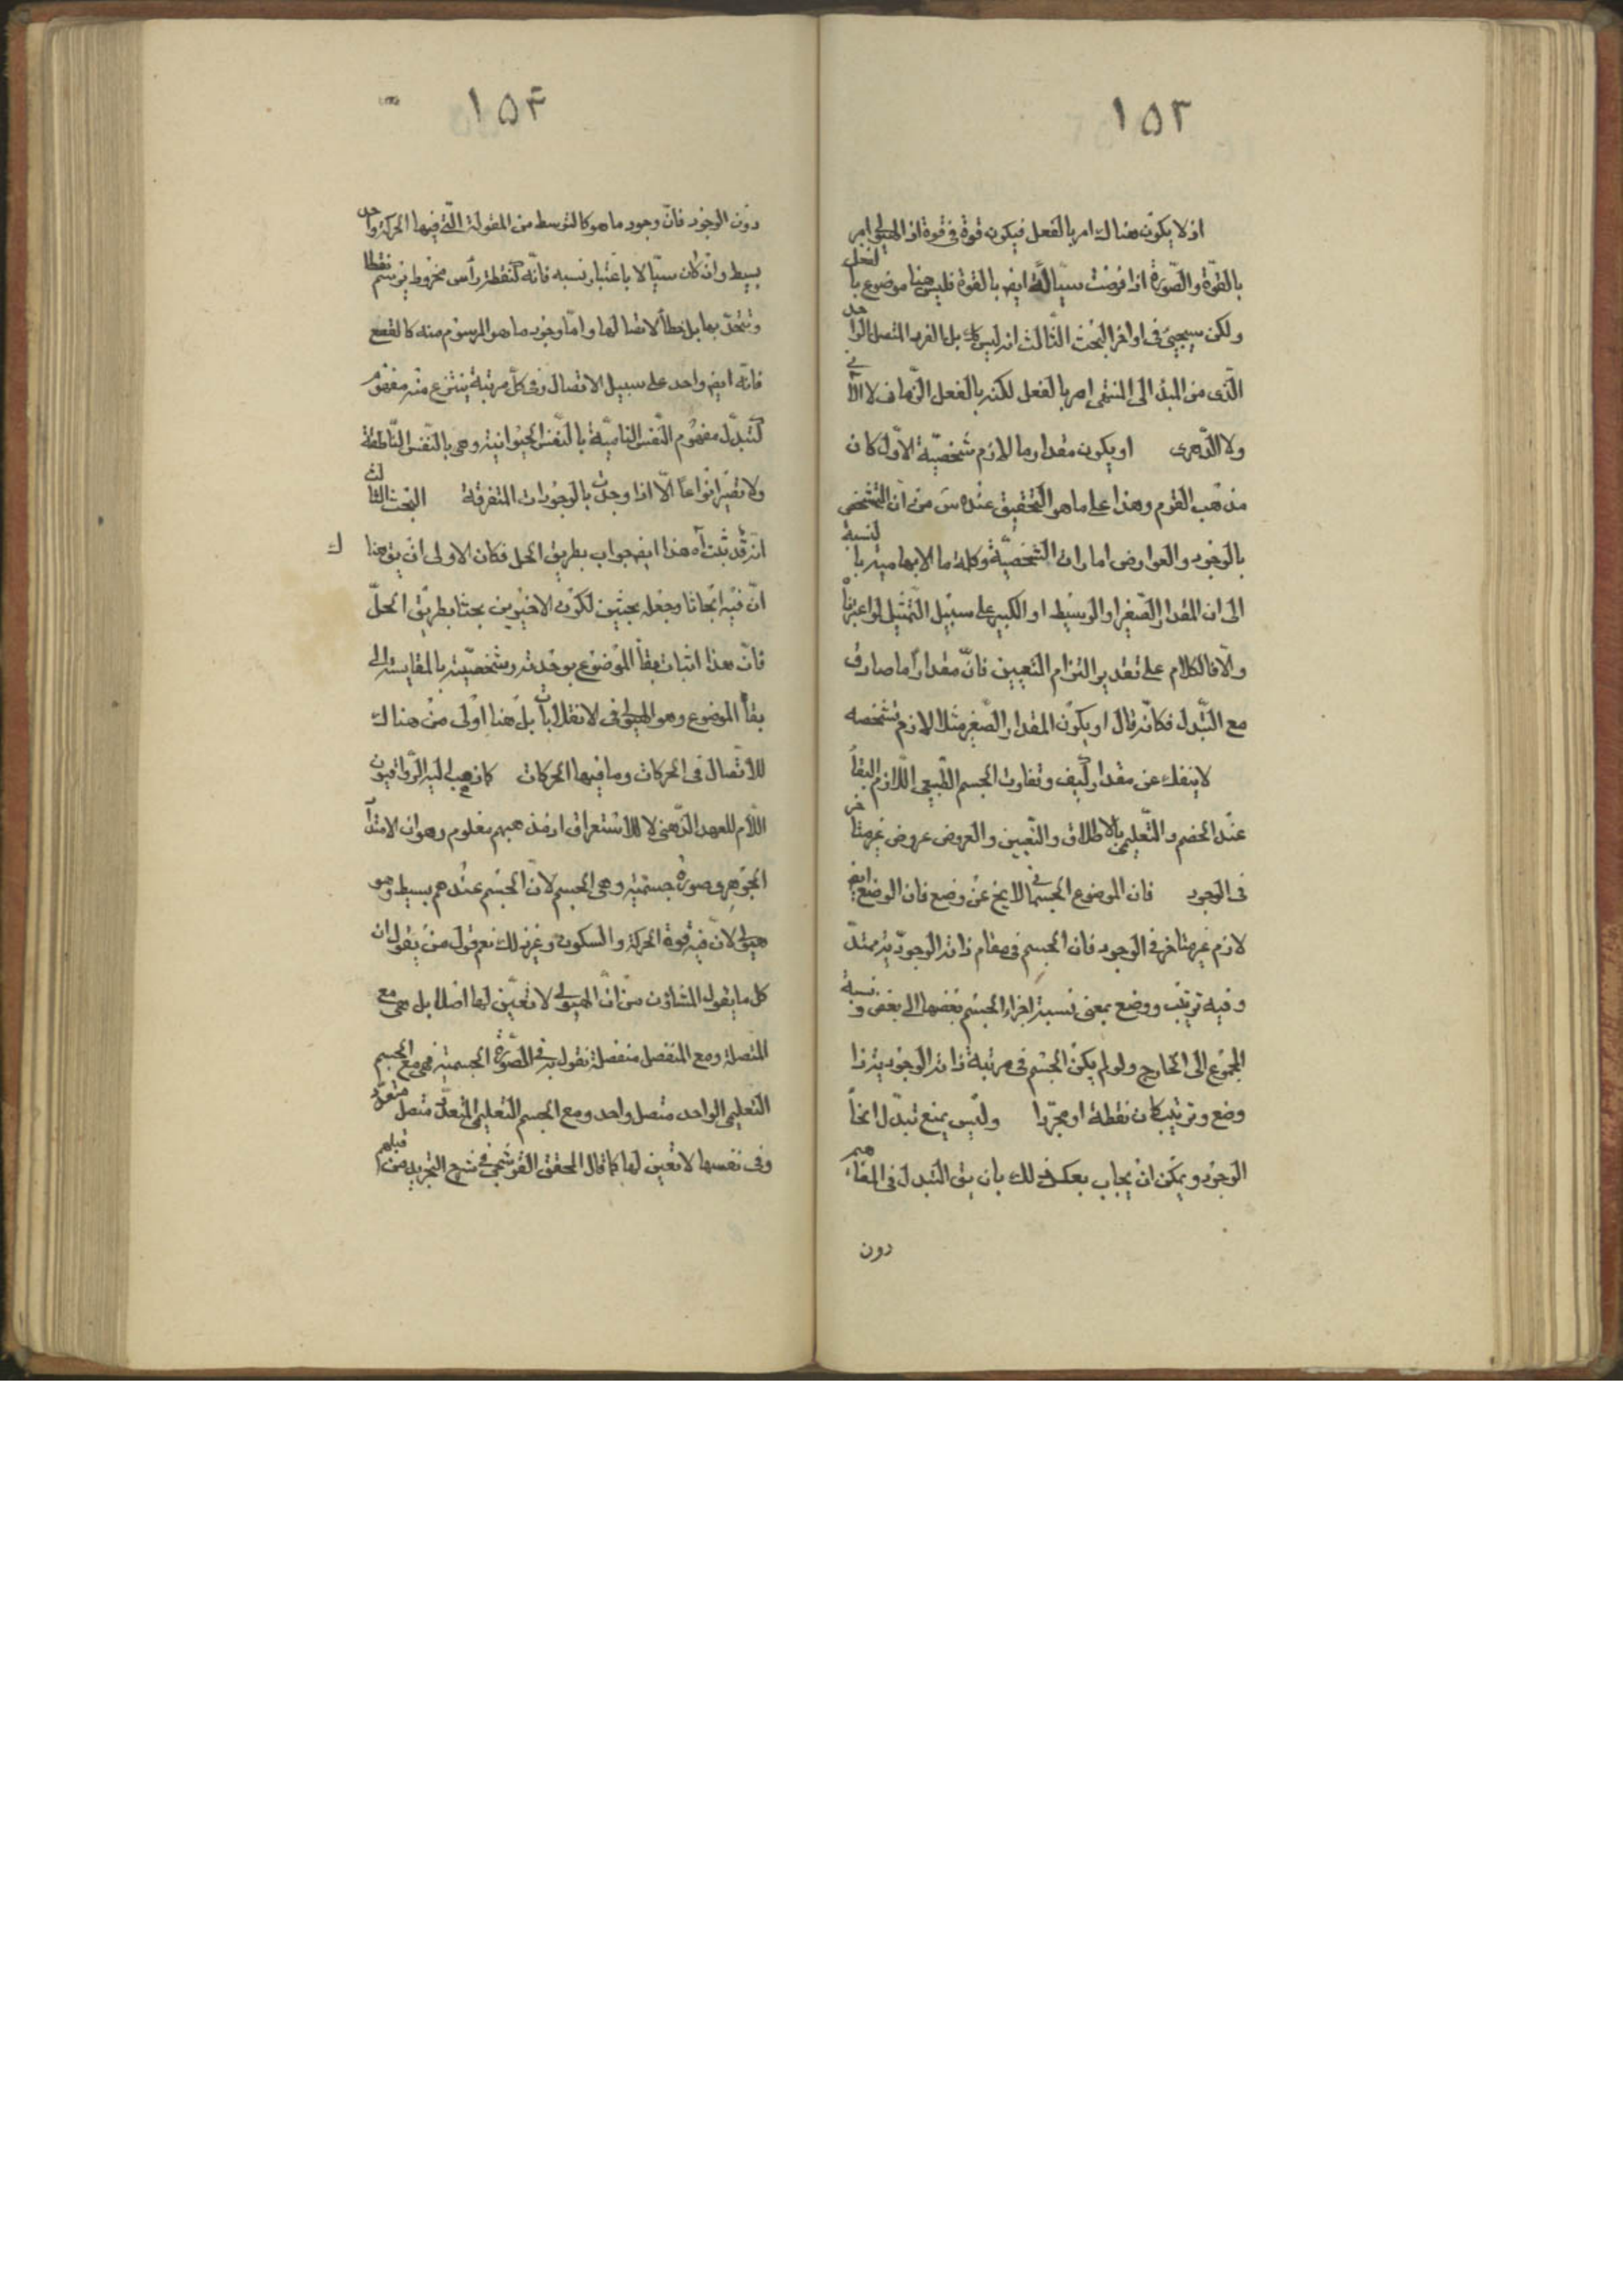 ١٥٣
اذ لا يكون هناك امر بالفعل فيكون قوة فى قوة اذ الهيولى امر
بالقوّة والصّورة اذا فرضت سيّالة ايض بالقوة فليس هنا موضوع بالفعل
ولكن سيجيئ فى اواخر البحث الثّالث انه ليس كك بل الفرد المتصل الواحد
الّذى من المبدء الى المنتهى امر بالفعل لكنه بالفعل الزّمانى لا الآنى
ولا الدّهرى او يكون مقدار ما لازم شخصيّة الاوّل كان
مذهب القوم وهذا على ما هو التحقيق عنده س من انّ التشخص
بالوجود والعوارض امارات الشخصيّة وكلمة ما الابهامية بالنسبة
الى ان المقدار الصّغير او الوسيط او الكبير على سبيل التمثيل لو اعتبرنا
والّا فالكلام على تقدير التزام التعيين فانّ مقدارا ما صادق
مع التبّدل فكانّه قال او يكون المقدار الصّغير مثلا لازم تشخصه
لا ينفك عن مقدار كيف وتفاوت الجسم الطّبيعى اللّازم البقأ
عند الخصم والتّعليمى بالاطلاق والتّعيين والعروض عروض غير متأخر
فى الوجود فان الموضوع الجسمانى لا يخ عن وضع فان الوضع ايض
لازم غير متاخر فى الوجود فان الجسم فى مقام ذاته الوجوديّة ممتدّ
وفيه ترتيب ووضع بمعنى نسبة اجزاء الجسم بعضها الى بعض ونسبة
المجموع الى الخارج ولو لم يكن الجسم فى مرتبة ذاته الوجودية ذا
وضع وترتيب كان نقطة او مجرّدا وليس يمنع تبدّل انحأ
الوجود ويمكن ان يجاب بعكس ذلك بان يق التبدل فى المفاهيم
دون
١٥٤
دون الوجود فانّ وجود ما هو كالتوسط من المقولة الّتى فيها الحركة واحد
بسيط وان كان سيّالا باعتبار نسبه فانّه كنقطة رأس مخروط يرتسم نقطا
وتتحدّ بها بل خطأ لاتصالها وامّا وجود ما هو المرسوم منه كالقطع
فانّه ايض واحد على سبيل الاتصال وفى كلّ مرتبة ينتزع منه مفهوم
كتبدّل مفهوم النّفس النّاميّة بالنّفس الحيوانية وهى بالنّفس النّاطقة
ولا تصير انواعاً الّا اذا وجدت بالوجودات المتفرقة البحث الثالث
انه قد ثبت آه هذا ايض جواب بطريق الحل فكان الاولى ان يق هنا ك
انّ فيه ابحاثا وجعله بحثين لكون الاخيرين بحثا بطريق الحلّ
فانّ هذا اثبات بقأ الموضوع بوحدته وشخصيّته بالمقايسة الى
بقأ الموضوع وهو الهيولى فى الانقلابات بل هنا اولى من هناك
للاتّصال فى الحركات وما فيها الحركات كما ذهب اليه الرّواقيون
اللّام للعهد الذّهنى لا للاستغراق اذ مذهبهم معلوم وهو ان الامتداد
الجوهر وصورة جسمية وهى الجسم لانّ الجسم عندهم بسيط وهو
هيولى لانّ فيه قوة الحركة والسكون وغير ذلك نعم قول من يقول ان
كل ما يقول المشاؤن من انّ الهيولى لا تعيّن لها اصلا بل هى مع
المتصلة ومع المنفصل منفصلة نقول به فى الصّورة الجسمية فهى مع الجسم
التعليمى الواحد متصل واحد ومع الجسم التعليمى المتعدّد متصل متعدد
وفى نفسها لا تعين لها كما قال المحقق القوشجى فى شرح التجريد من قبلهم